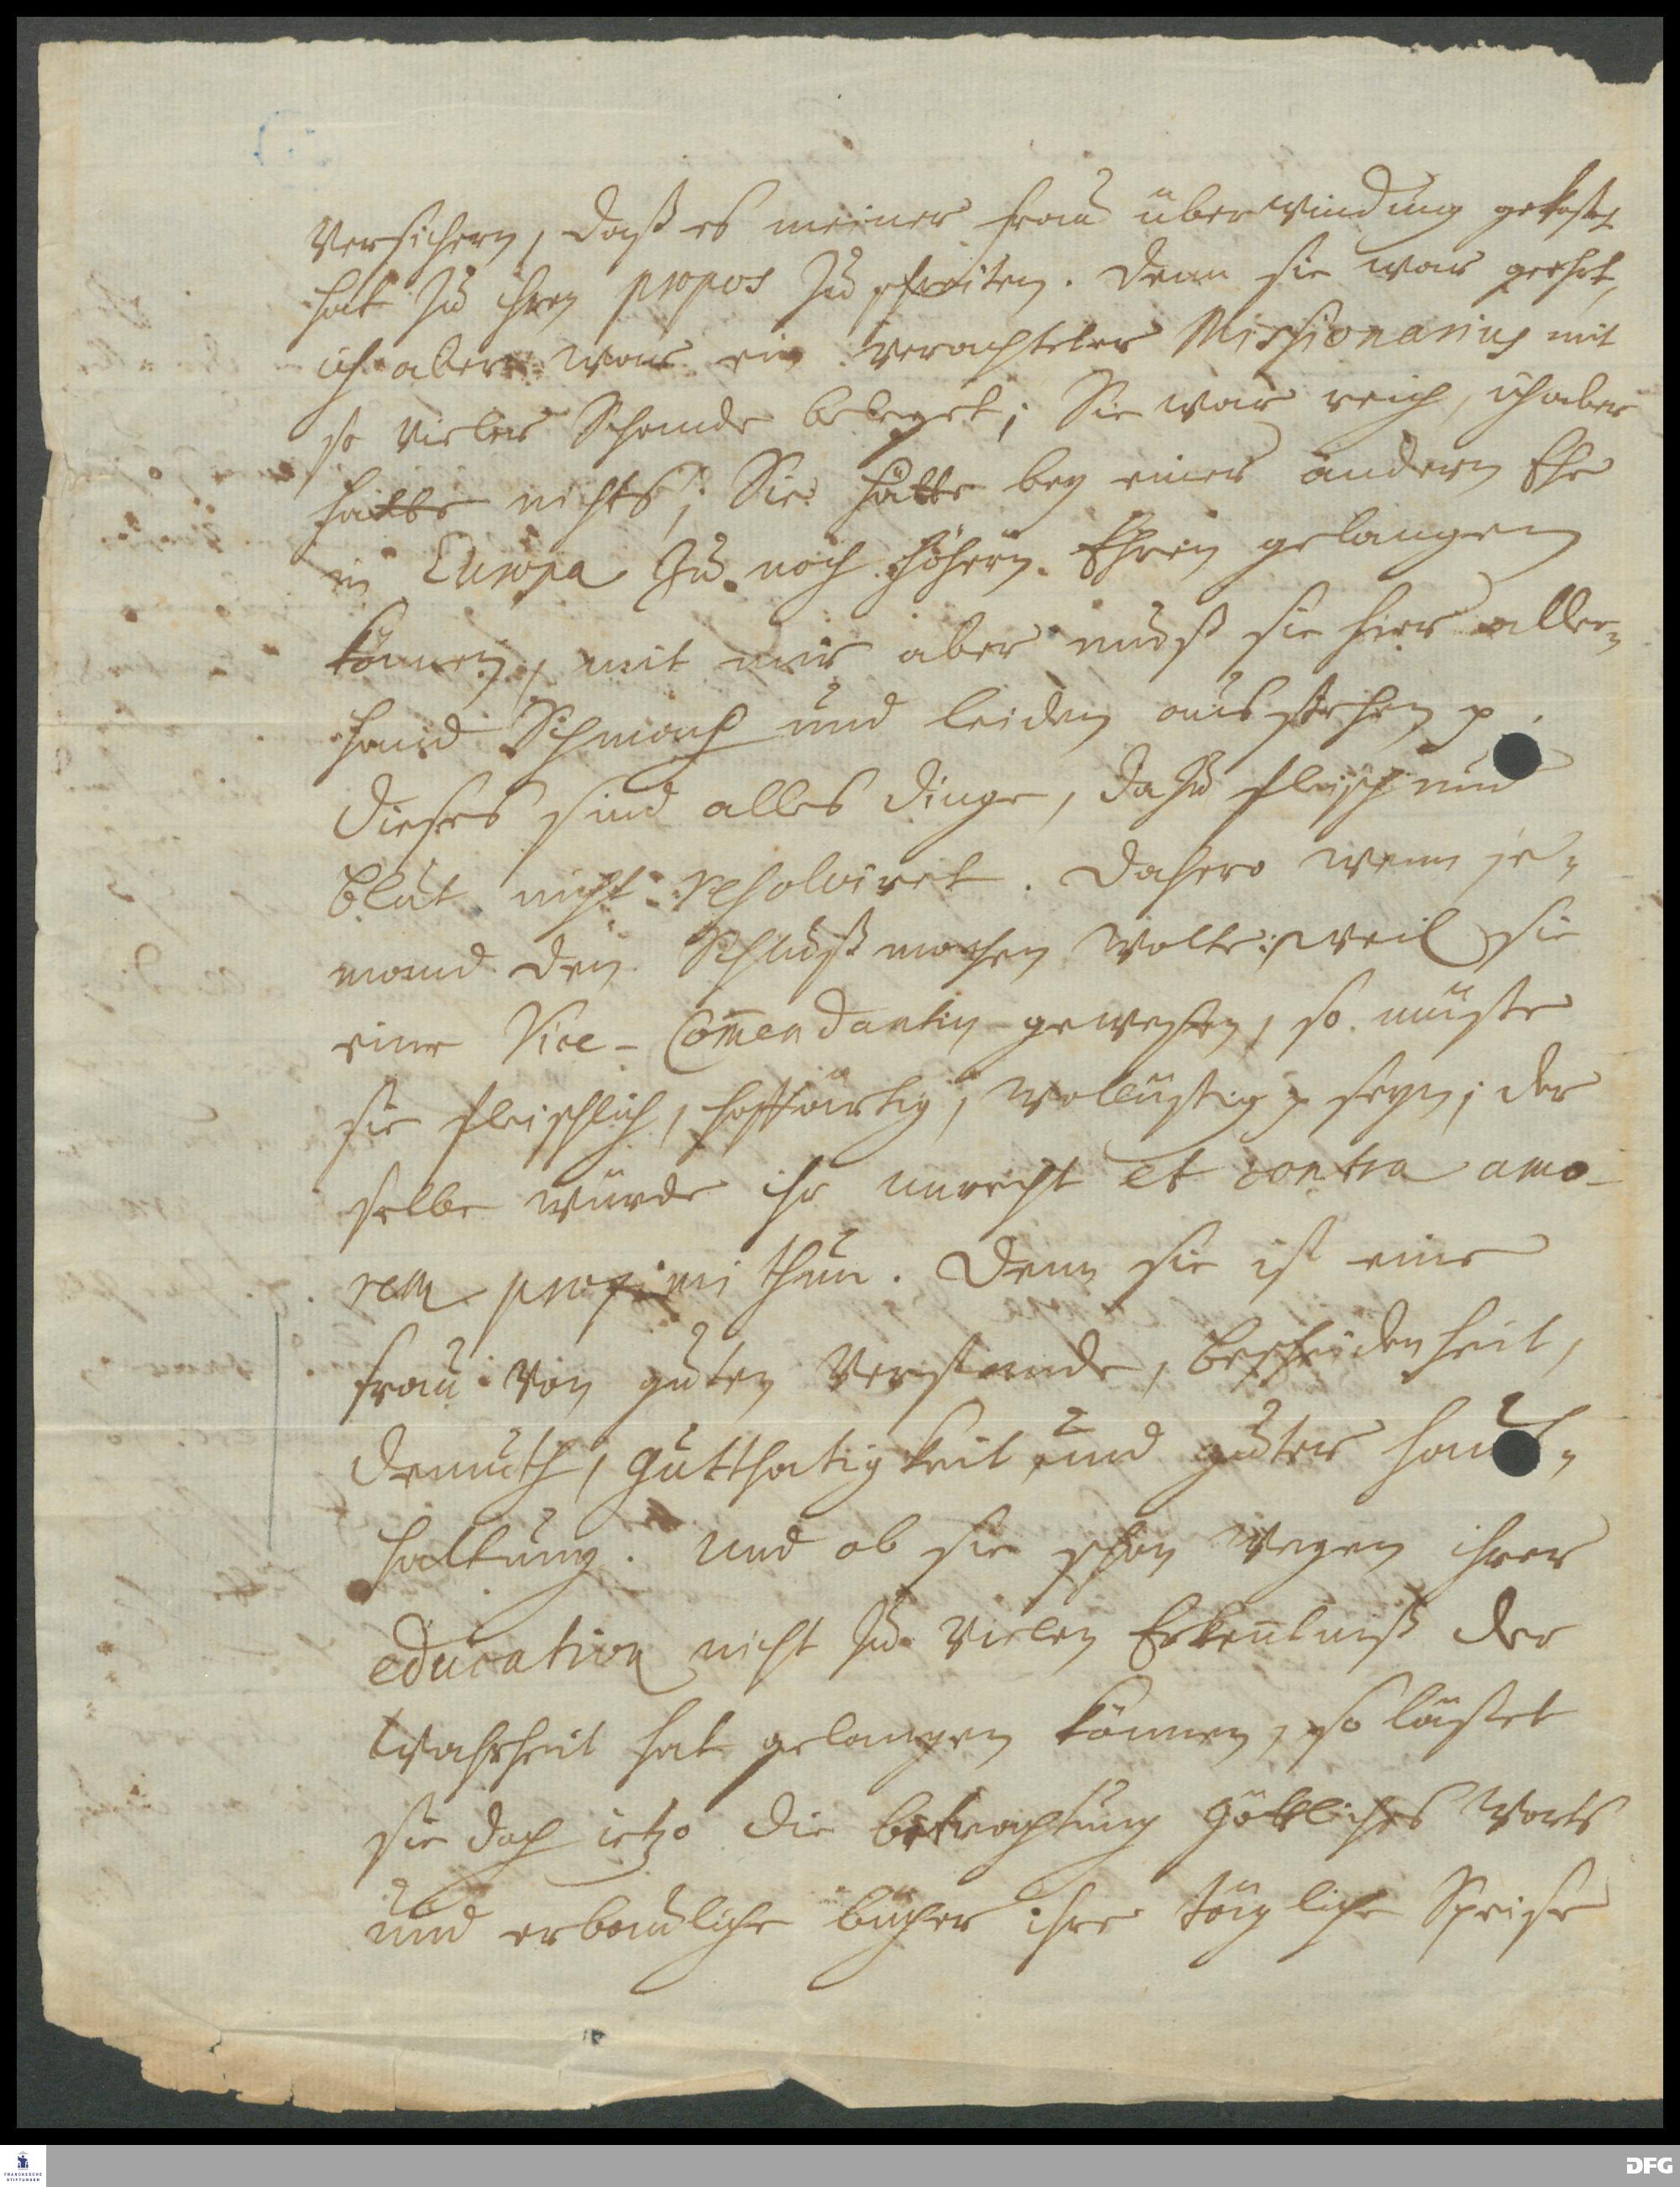 versichern, daß es meiner Frau überwindung gekostet
hat zu ihren propos zu schreiten. Denn sie war geehrt,
ich aber war ein verachteter Missionarius mit
so vieler Schande beleget; Sie war reich, ich aber
hatte nichts; Sie hätte bey einer andern Ehe
in Europa zu noch höhern Ehren gelangen
können, mit mir aber muß sie hier aller-
hand Schmach und leiden ausstehen p.
Dieses sind alles dinge, dazu fleisch und
blut nicht resolviret. Dahero wenn je-
mand den Schluß machen wolte: weil sie
eine Vice-Com̄endantin gewesen, so müste
sie fleischlich, hoffärtig, wollüstig p seyn; der
selbe würde ihr unrecht et contra amo-
rem proximi thun. Denn sie ist eine
Frau von guten Verstande, bescheidenheit,
demuth, Gutthätigkeit und guter Hauß-
haltung. Und ob sie schon wegen ihrer
education nicht zu vielen Erkentniß der
Wahrheit hat gelangen können, so lässet
sie doch ietzo die betrachtung Göttliches Worts
und erbauliche bücher ihre tägliche Speise
FRANCKESCHE
STIFTUNGEN
DFG